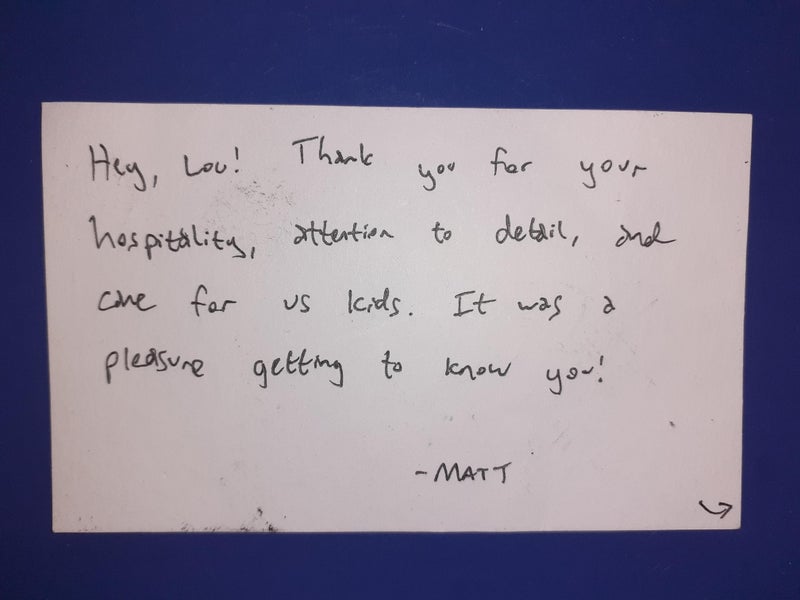 Hey, Lou! Thank you for your
hospitality, attention to detail, and
care for us kids. It was a
pleasure getting to know you!
-MATT